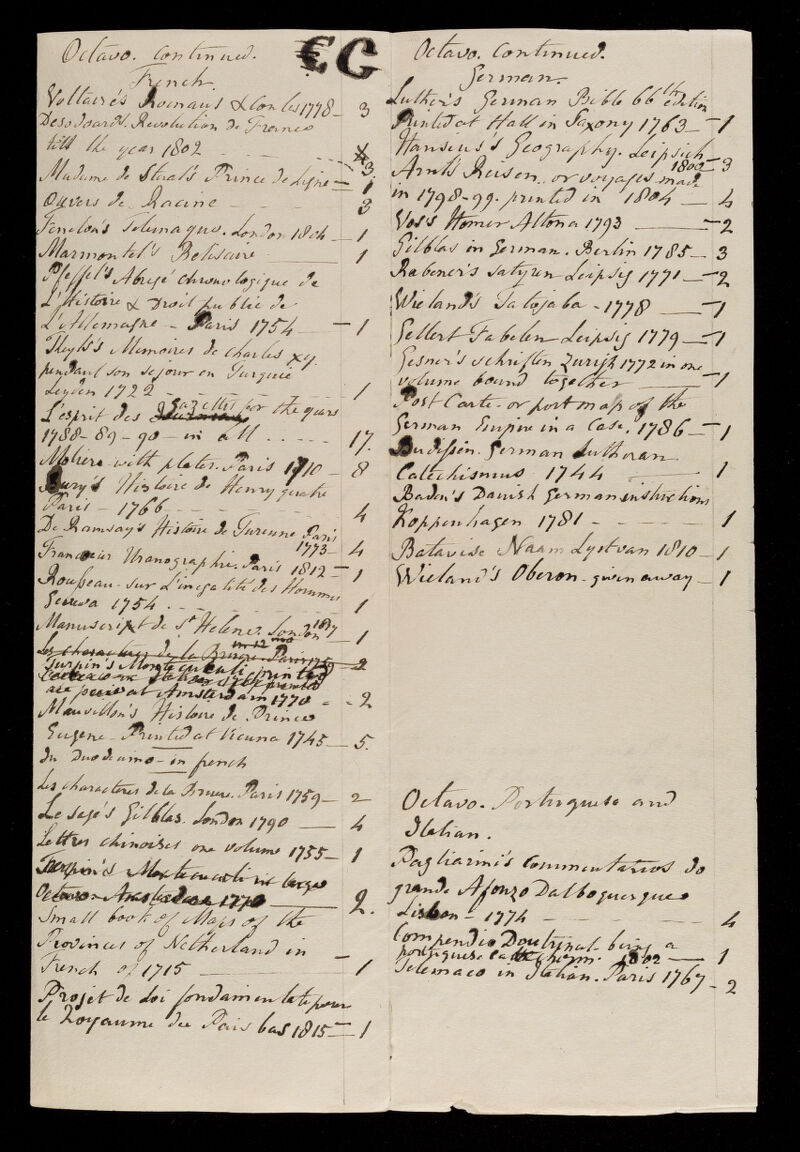 Octavo. continued.
French.
Voltaire's Romans & Contes 1778 — 3
Desodoards Revolution de France
till the year 1802 - - - 3.
Madame de Stael's Prince de Ligne — 1
Ouvers de Racine - - 3
Fenelon's Telemaque. London 1804 — 1
Marmontel's Belisaire — 1
Pfeffel's Abregé chronologique de
L'Histoire & Droit publie de
L'Allemagne — Paris 1754 — 1
Theyls's Memoires de Charles XII.
pendant son sejour en Turquie
Leyden 1722 — 1
L'esprit des Gazettes for the years
1788-89-90 - in all - - - - - 17.
Moliere with plates. Paris 1710 - 8
Bury's Histoire de Henry quatre
Paris - 1766 - - - - 4
De Ramsay's Histoire de Turenne Paris
1773 — 4
Francœur Uranographie. Paris 1812 — 1
Rousseau sur L'inegalité des Hommes
Geneva 1754 - - - - 1
Manuscript de St Helene. London 1817 — 1
in 12 mo
Les characteres de la Bruere. Paris 1759 — 2
Turpin's Montecuculi printed
at Amsterdam 1770 - - 2
Mauvillon's Histoire de Prince
Eugene - Printed at Vienna 1745 — 5.
In Duodecimo - in french
Les characteres de la Bruere. Paris 1759 — 2
Le sage's Gilblas. London 1790 — 4
Lettres chinoises one volume 1755 — 1
Turpin's Montecuculi in large
Octavo Amsterdam 1770 — 2.
Small book of Maps of the
Provinces of Netherland in
French of 1715 — 1
Projet de Loi fondamentale pour
le Royaume des Pais bas 1815 — 1
EG
Octavo. continued.
German.
Luther's German Bible 66th edition
Printed at Hall in Saxony 1763 — 1
Hanseus's Geography. Leipsich
1802 — 3
Arnts Reisen or voyages made
in 1798-99. printed in 1804 — 4
Voss Homer Altona 1793 — 2
Gilblas in German. Berlin 1785 — 3
Rabener's satyren Leipsig 1771 — 2
Wieland's Tatojaba - 1778 — 1
Gellert Fabelen Leipsig 1779 — 1
Gesner's schriften Zurigh 1772 in one
volume bound together — 1
Post Carte or port map of the
German Empire in a Case. 1786 — 1
Budissin German Lutheran
Catechismus 1744 — 1
Baden's Danish German instructions
Koppenhagen 1781 - - - - - 1
Batavise Naam Lyst van 1810 — 1
Wieland's Oberon - given away — 1
Octavo. Portuguese and
Italian.
Pagliarini's Commentarios do
grande Afonzo Dalboquerque
Lisbon - 1774 - - - - - 4
Compendio Doutrinal being a
portuguese Catechism. 1802 — 1
Telemaco in Italian. Paris 1767 - 2